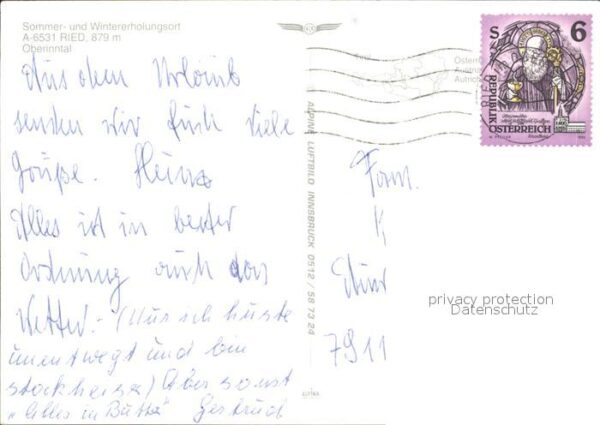 Sommer- und Wintererholungsort
A-6531 RIED, 879 m
Oberinntal
Aus dem Urlaub
senden wir Euch viele
Grüße. Heinz
Alles ist in bester
Ordnung auch das
Wetter.- (Nur ich huste
unentwegt und bin
stockheiser) Aber sonst
"Alles in Butter" Gertrud
ALPINE LUFTBILD INNSBRUCK 0512 / 58 73 24
Tirol
S 6
REPUBLIK
ÖSTERREICH
Fam.
K
7911
privacy protection
Datenschutz